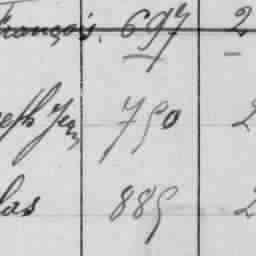 françois. 697 2
eph Jean 750 2
las 885 2